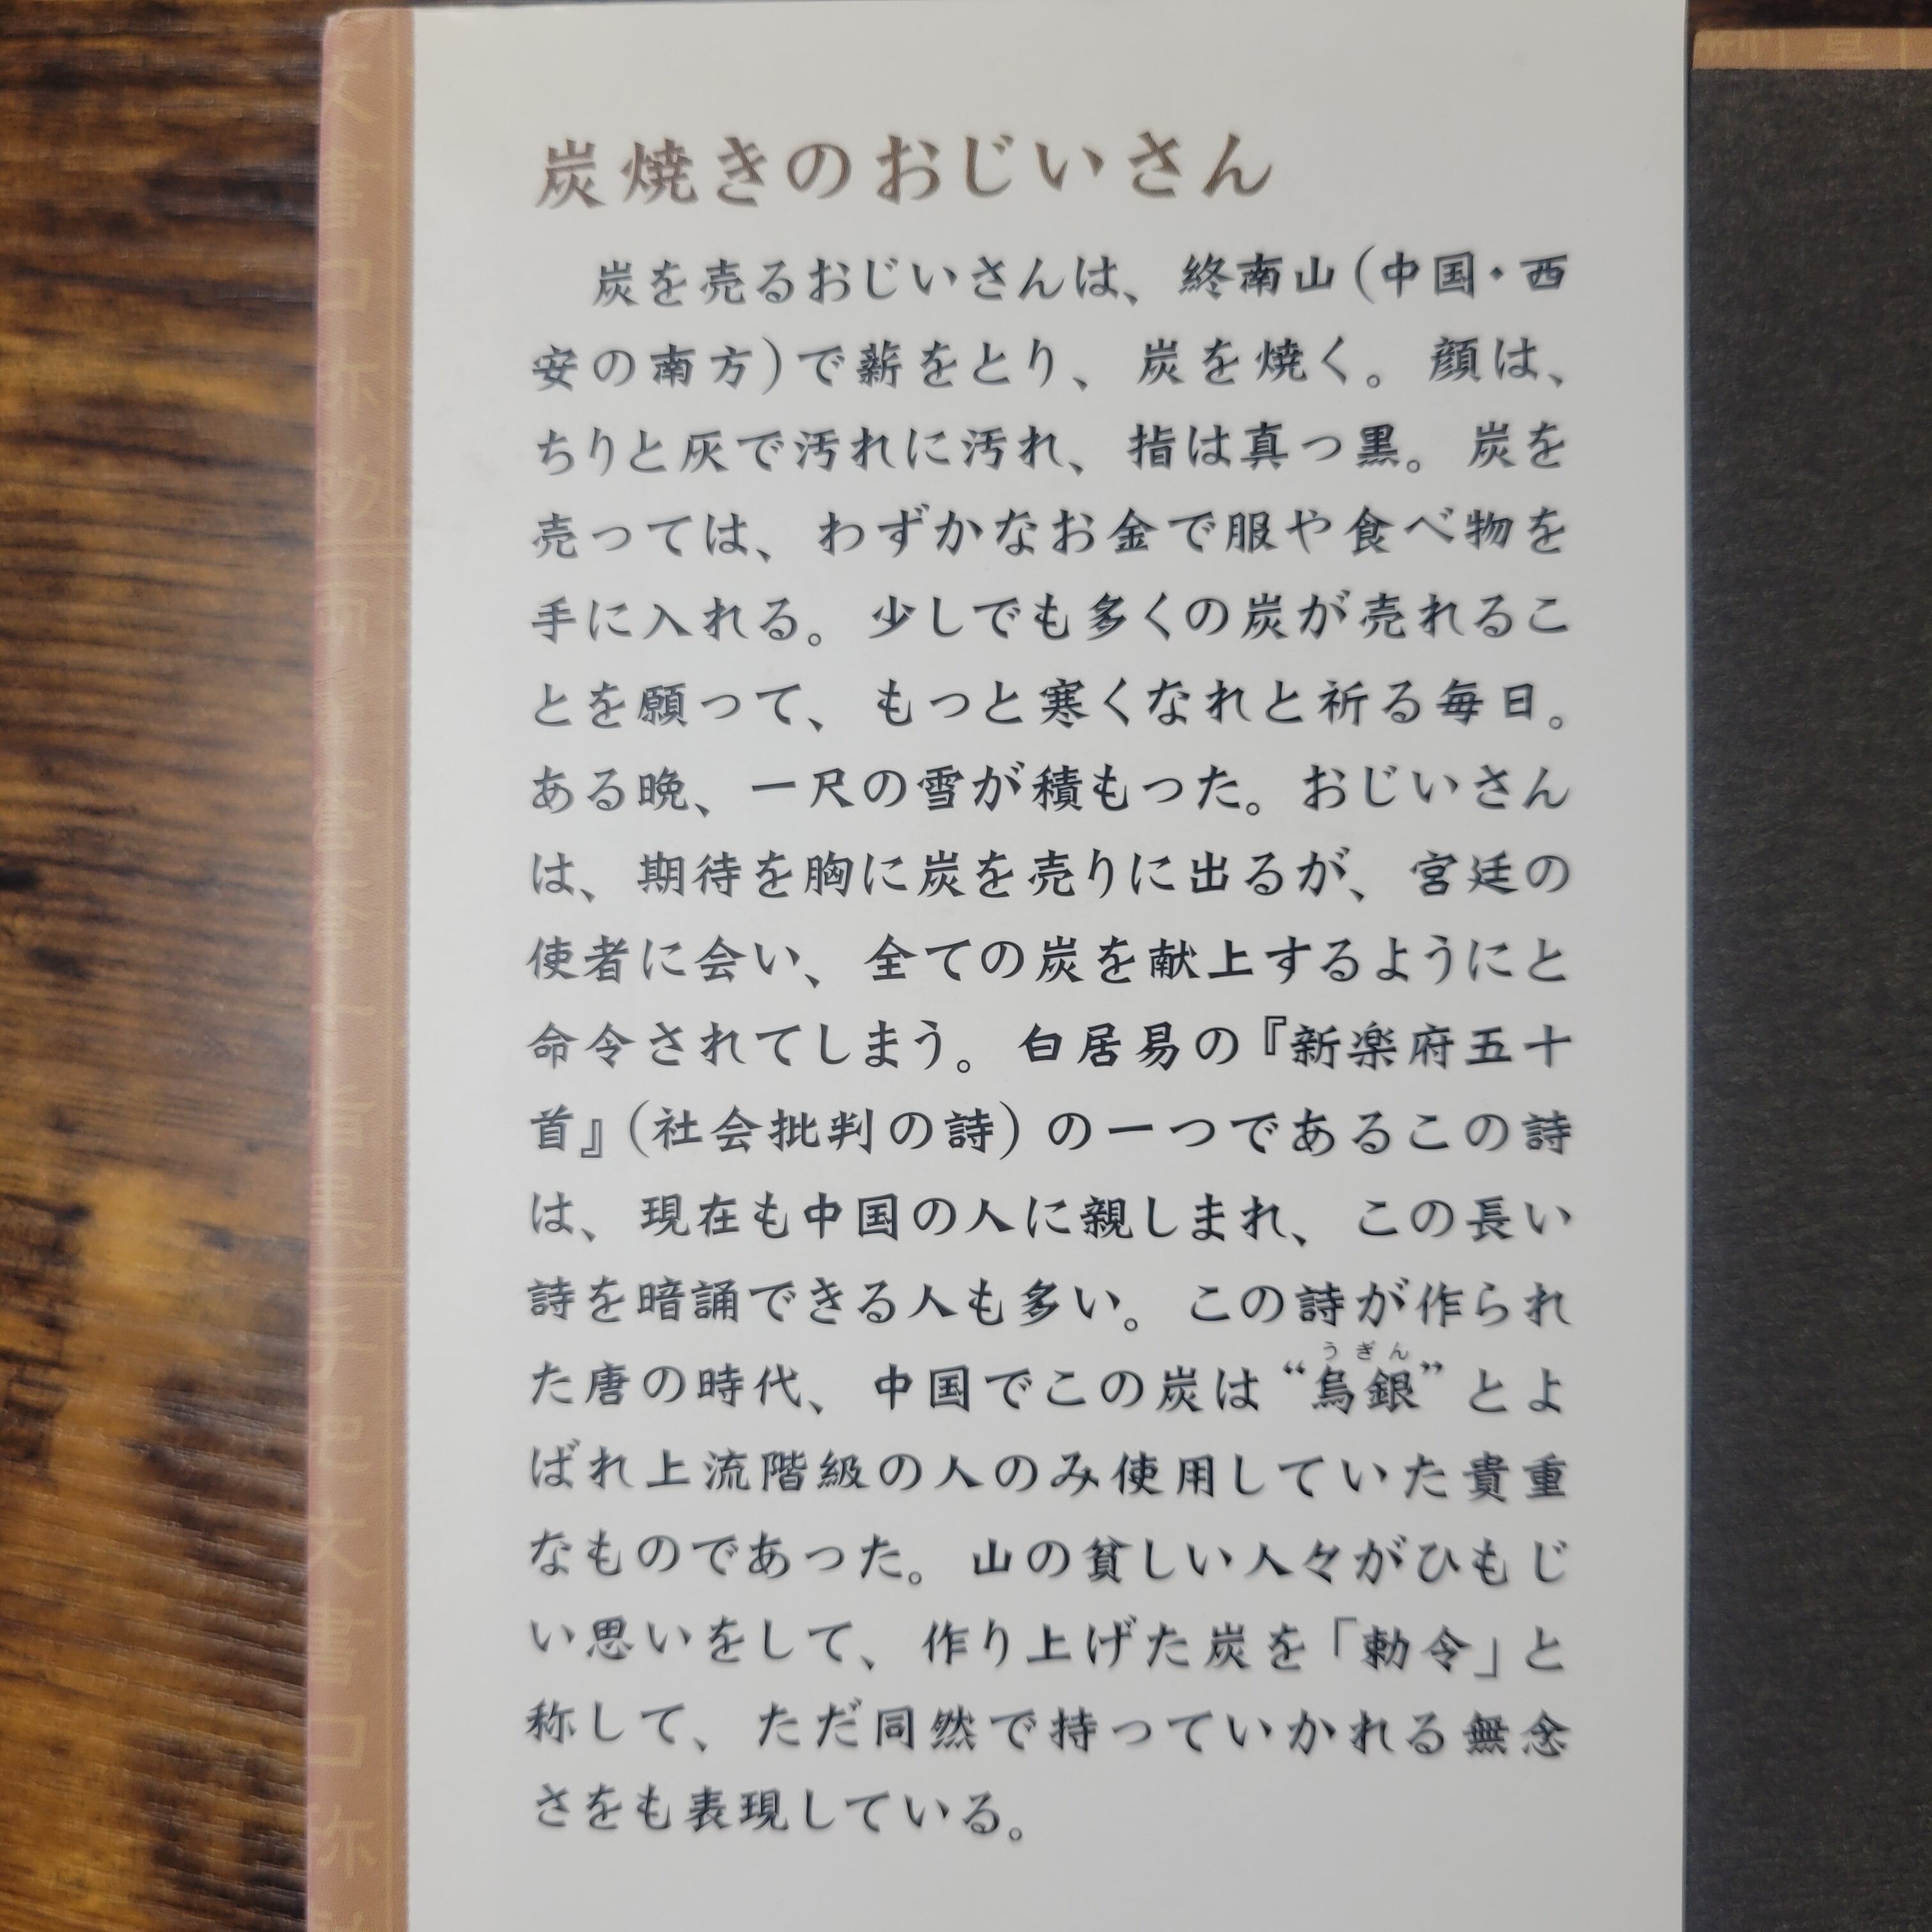 炭焼きのおじいさん
炭を売るおじいさんは、終南山(中国・西
安の南方)で薪をとり、炭を焼く。顔は、
ちりと灰で汚れに汚れ、指は真っ黒。炭を
売っては、わずかなお金で服や食べ物を
手に入れる。少しでも多くの炭が売れるこ
とを願って、もっと寒くなれと祈る毎日。
ある晩、一尺の雪が積もった。おじいさん
は、期待を胸に炭を売りに出るが、宮廷の
使者に会い、全ての炭を献上するようにと
命令されてしまう。白居易の『新楽府五十
首』(社会批判の詩)の一つであるこの詩
は、現在も中国の人に親しまれ、この長い
詩を暗誦できる人も多い。この詩が作られ
うぎん
た唐の時代、中国でこの炭は“烏銀”とよ
ばれ上流階級の人のみ使用していた貴重
なものであった。山の貧しい人々がひもじ
い思いをして、作り上げた炭を「勅令」と
称して、ただ同然で持っていかれる無念
さをも表現している。